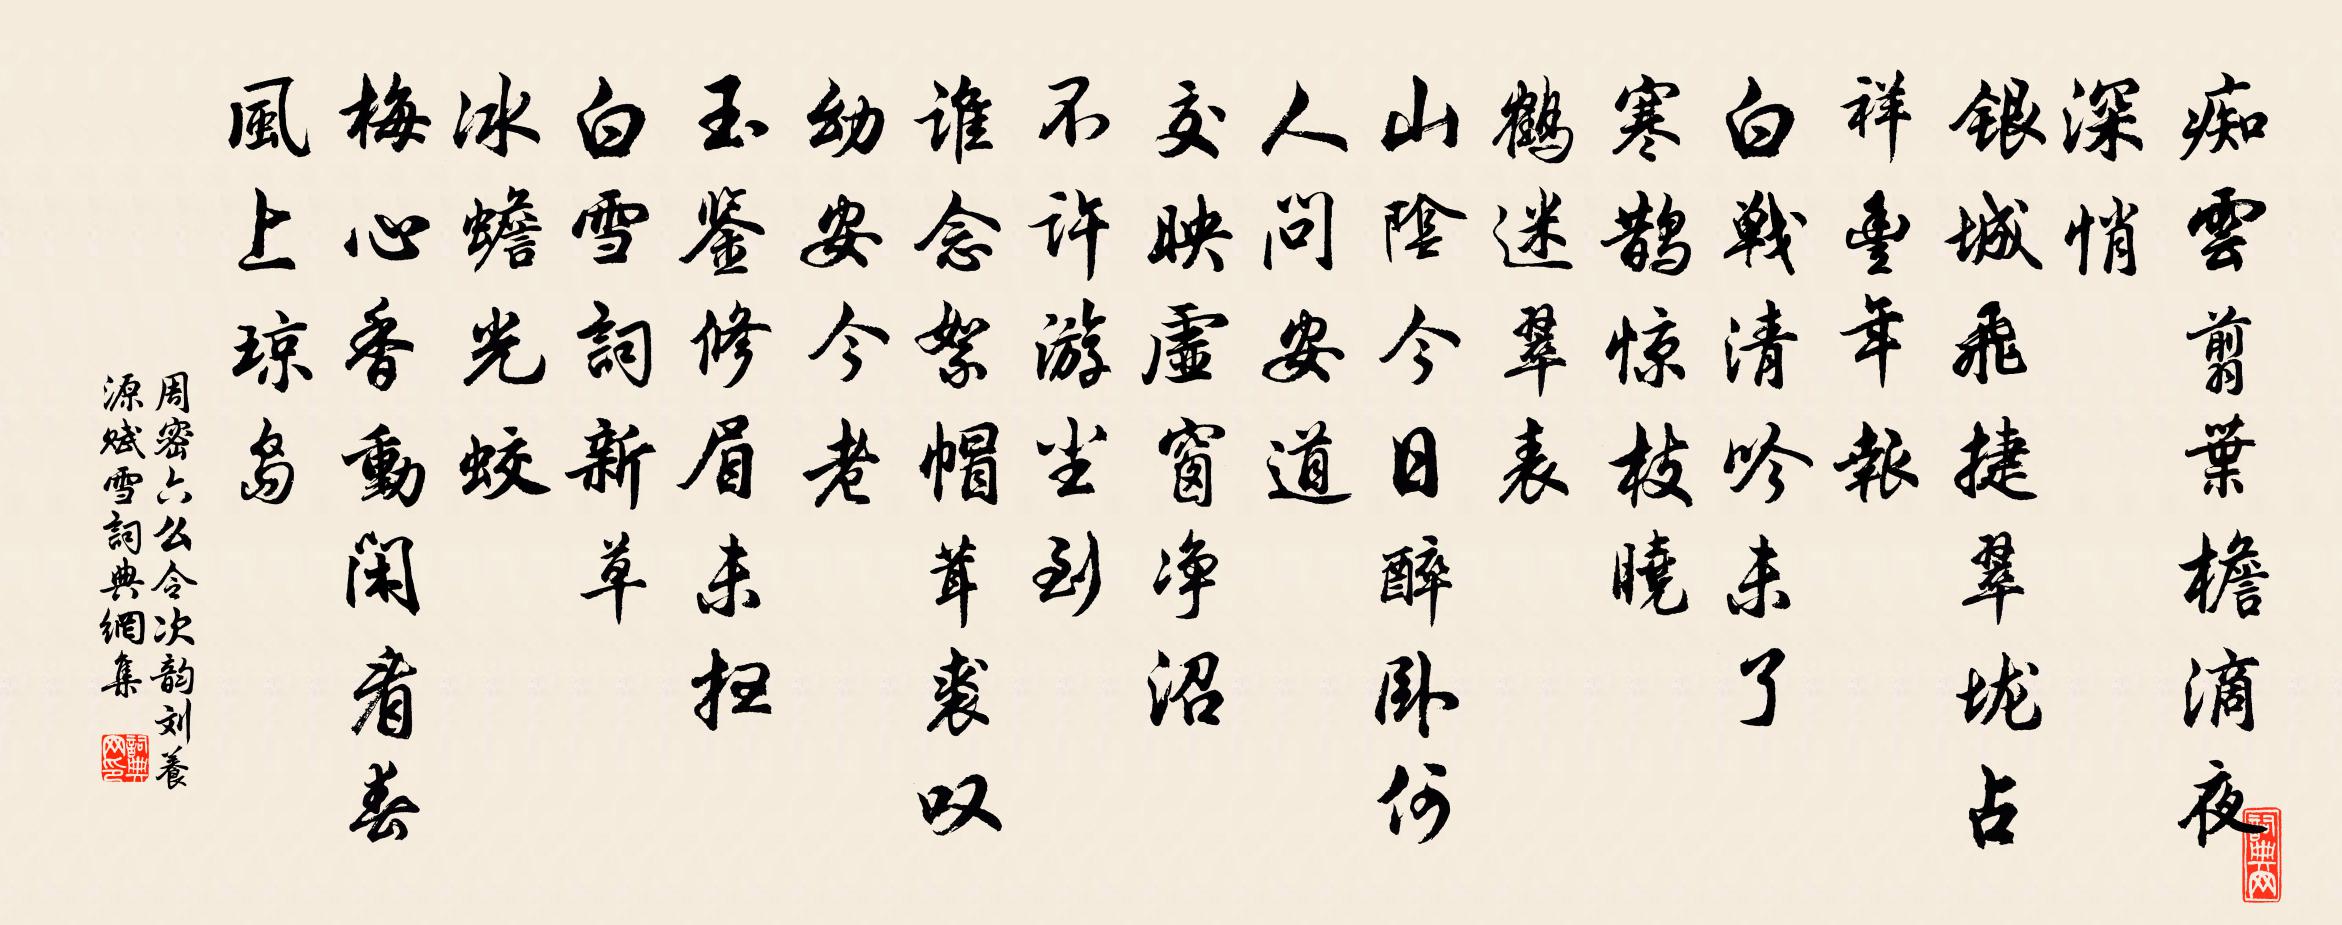 痴雲剪葉檐滴夜
深悄
银城飛捷翠垅占
祥豊年報
白戦清吟未了
寒鹊惊枝曉
鶴迷翠表
山陰今日醉卧何
人问安道
交映虚窗净沼
不许游尘到
谁念絮帽茸裘叹
幼安今老
玉鉴修眉未扫
白雪詞新草
冰蟾光皎
梅心香動闲看春
風上琼岛
周密六幺令次韵刘養
源赋雪詞典網集
詞典网印
詞典网